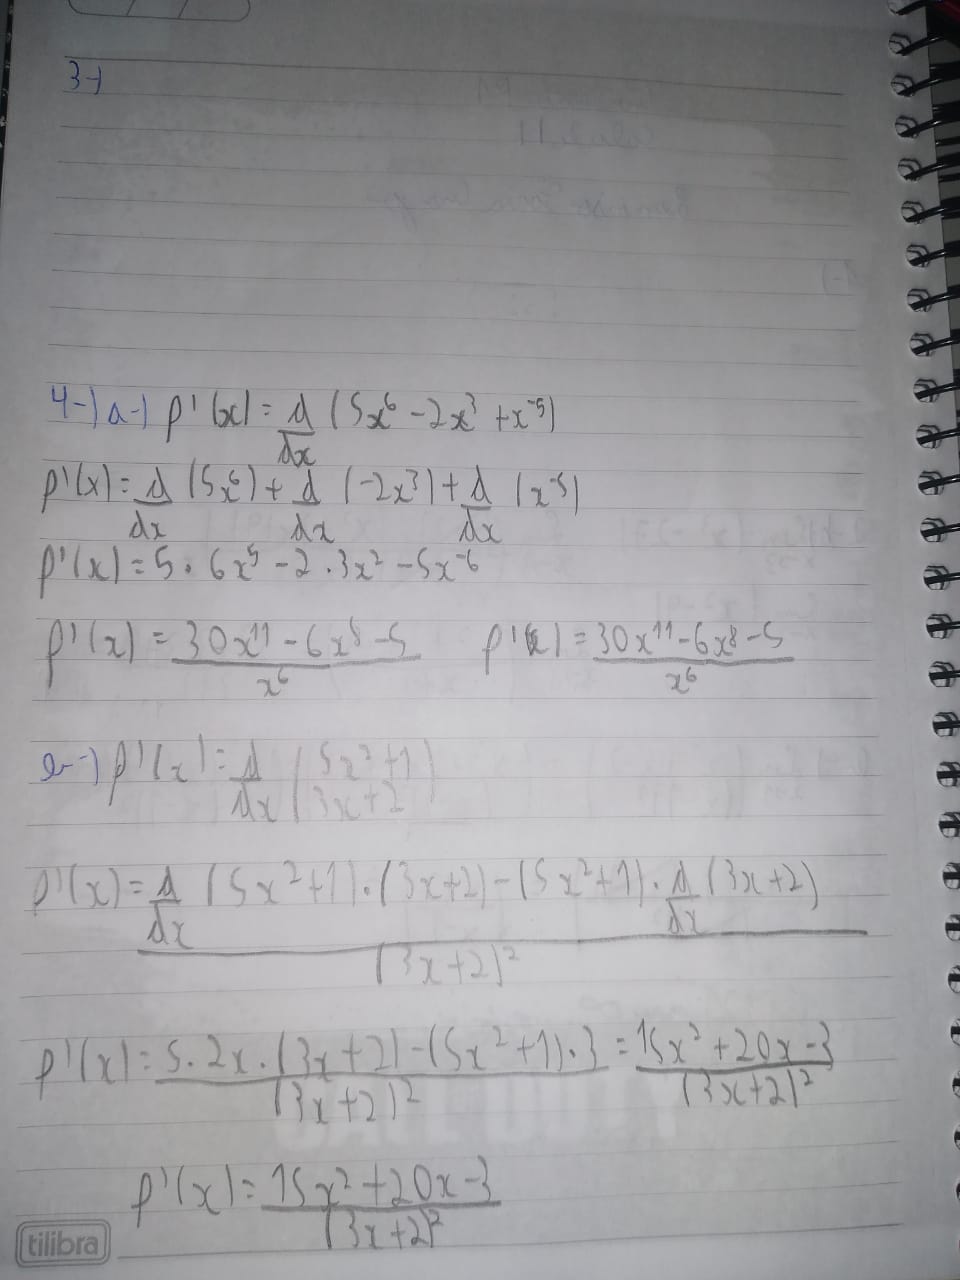 3-)
4-) a-) p'(x) = d/dx (5x⁶ - 2x³ + x⁻⁵)
p'(x) = d/dx (5x⁶) + d/dx (-2x³) + d/dx (x⁻⁵)
p'(x) = 5 · 6x⁵ - 2 · 3x² - 5x⁻⁶
p'(x) = 30x¹¹ - 6x⁸ - 5 / x⁶ p'(x) = 30x¹¹ - 6x⁸ - 5 / x⁶
b-) p'(x) = d/dx (5x² + 1 / 3x + 2)
p'(x) = d/dx (5x² + 1) · (3x + 2) - (5x² + 1) · d/dx (3x + 2) / (3x + 2)²
p'(x) = 5 · 2x · (3x + 2) - (5x² + 1) · 3 / (3x + 2)² = 15x² + 20x - 3 / (3x + 2)²
p'(x) = 15x² + 20x - 3 / (3x + 2)²
tilibra